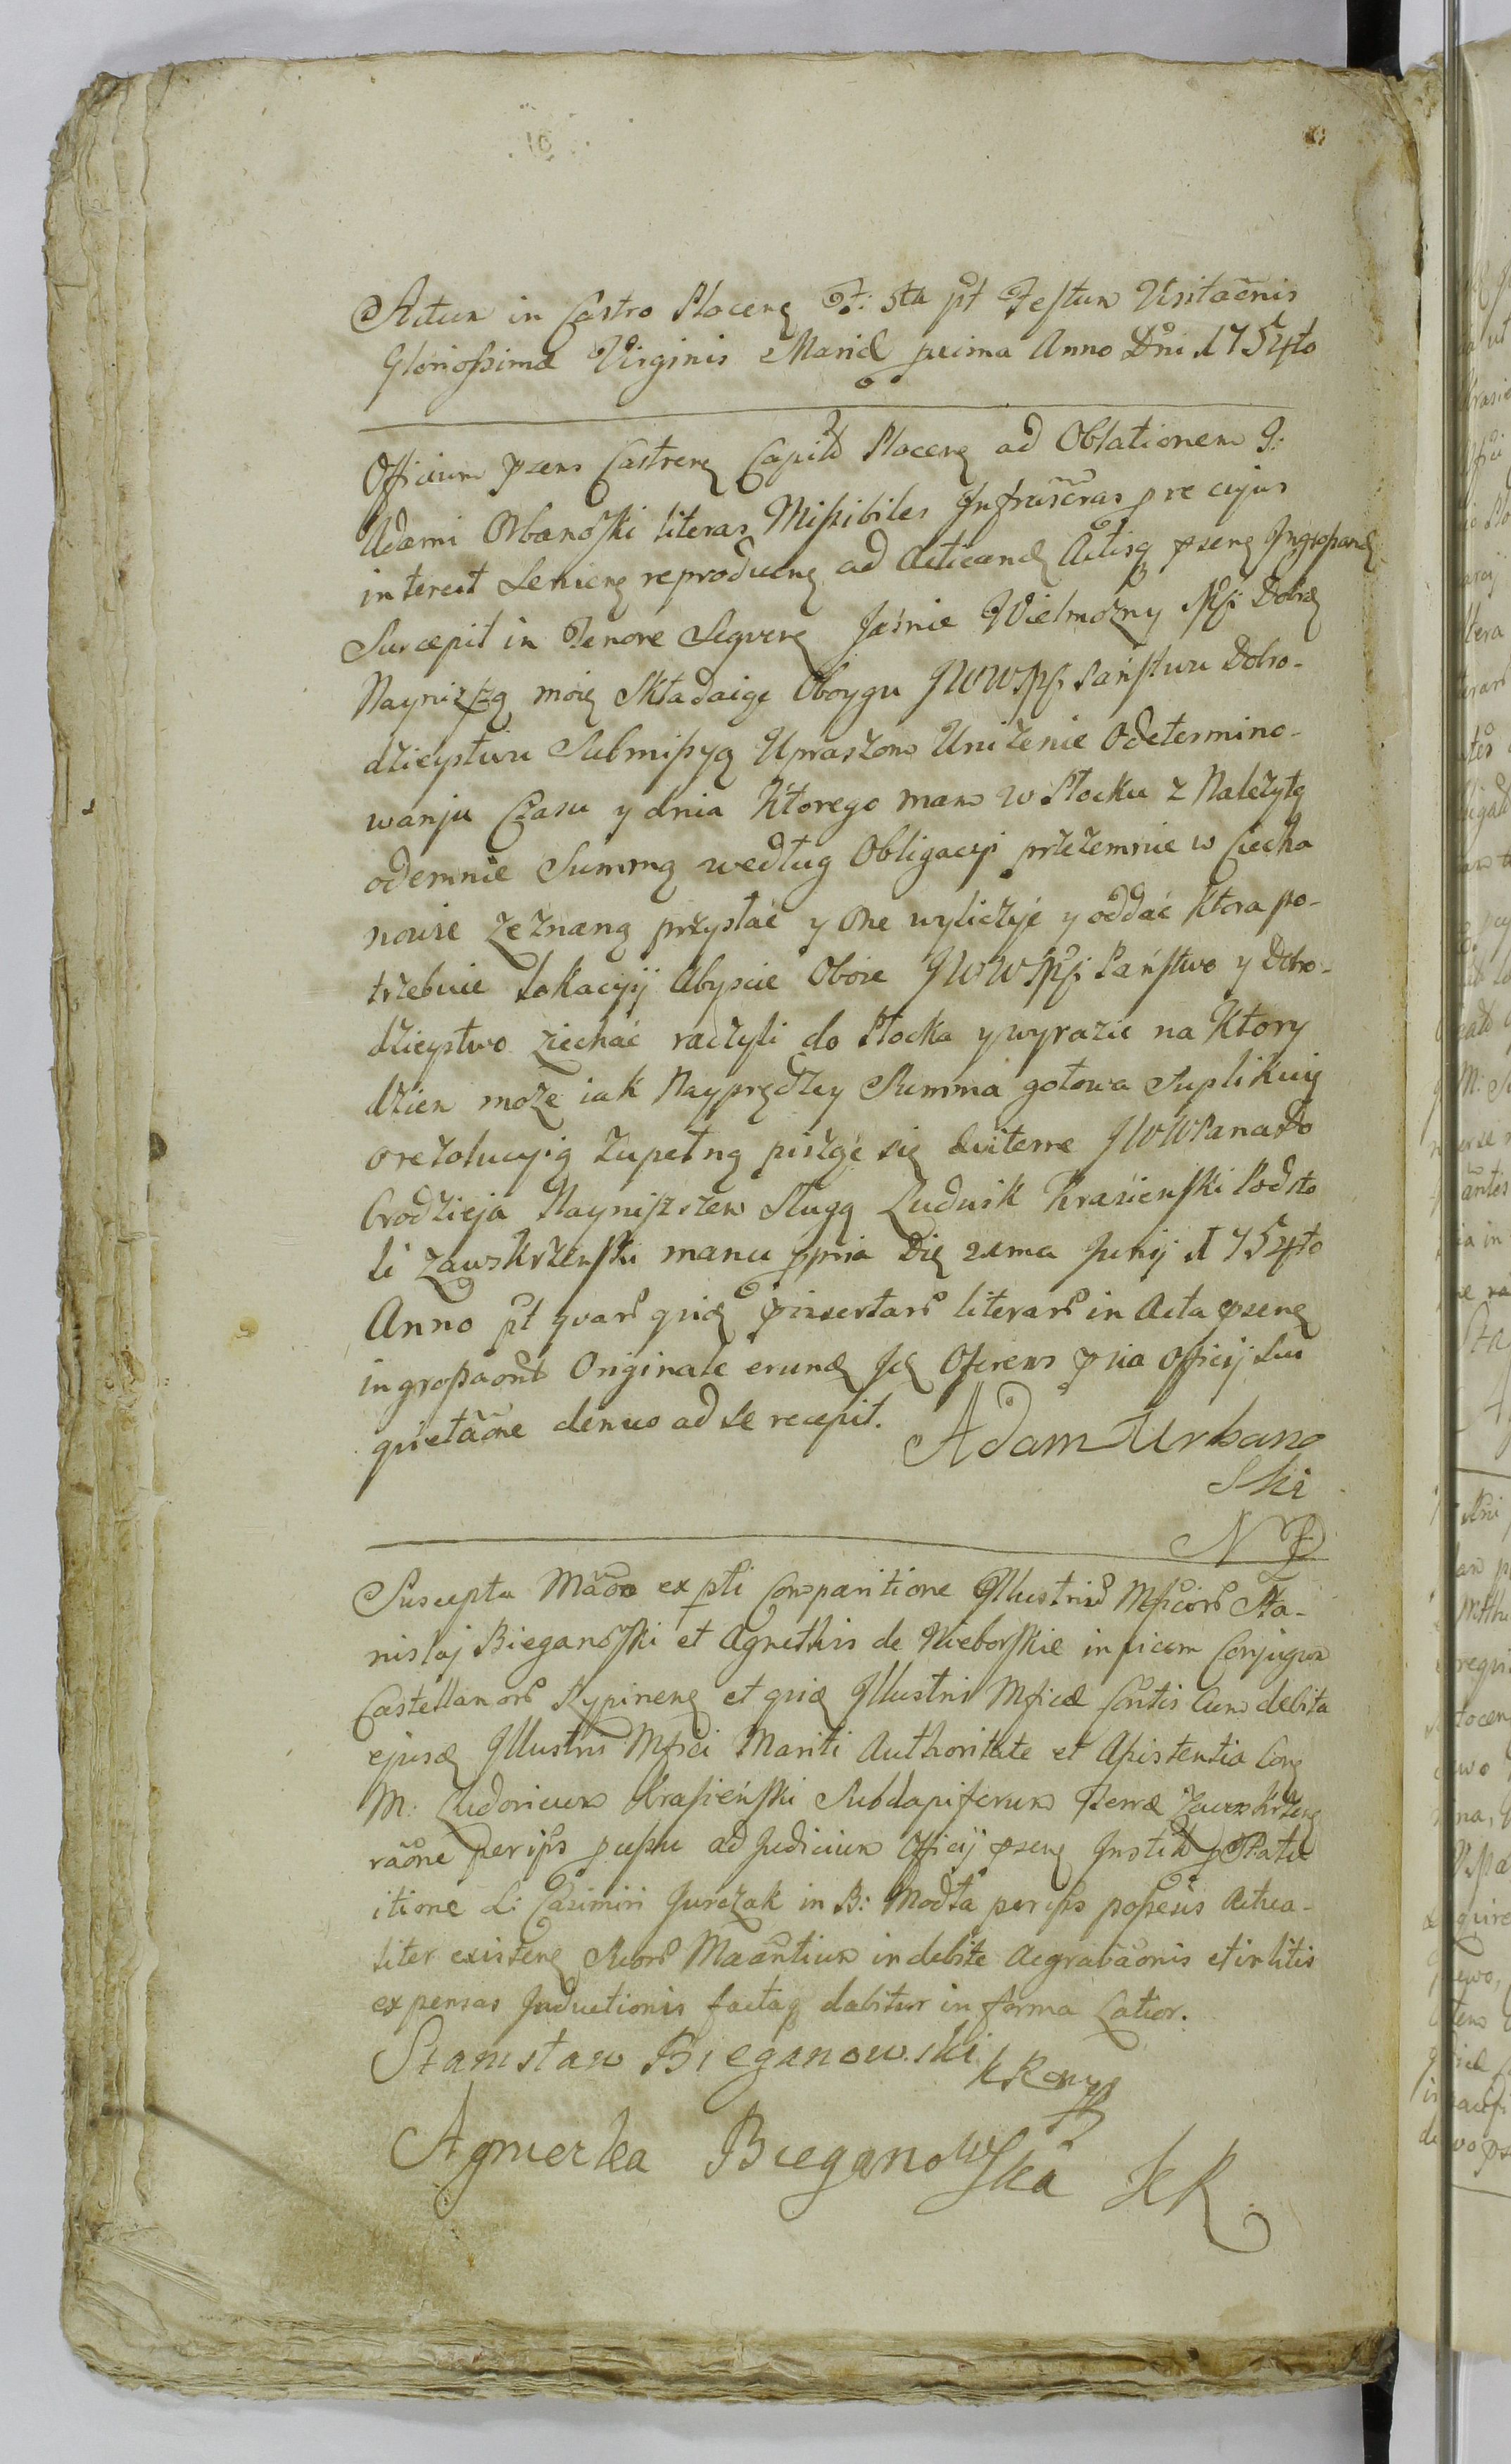 Actum in Castro Plocen F: 5ta pt Festum Visitaõnis
Gloriossimæ Virginis Mariæ prima Anno Dñi 1754to
Officium psens Castren Capitl Plocen ad Oblationem G:
Adami Orbanoski literas Missibiles Infrascras pre cujus
interest Senien reproducen ad acticand Actisq psen Ingrossand
Suscepit in Tenore Seqven Jaśnie Wielmożny Mści Dobrd
Nayniższą moię Składaiąc Oboygu JWWMści Państwu Dobro-
dzieystwu Submissyą Upraszam Uniżenie O determino-
wanju Czasu y dnia Ktorego mam w Płocku z Należytą
odemnie Summą według Obligacyi przezemnie w Ciecha
nowie zeznaną przystać y One wyliczyć y oddać Ktora po-
trzebuie Lokacyij Abyscie Oboie JWWMści Państwo y Dobro-
dzieystwo ziechać raczyli do Płocka y wyrazic na Ktory
dzien może iak Nayprędzey Summa gotowa Suplikuię
o rezolucyią zupełną pisząc się quiterre JWWPana Do
brodzieja Nayniższem Sługą Ludwik Krasieński Podsto
li Zawskrzenski manu ppria Die 21ma Junij 1754to
Anno pt qvar quid pinsertar literar in Acta psen
ingrossaõn Originale erund Id Oferens psia Officij Sui
quietaõne denuo ad se recepit. Adam Urbano
Ski
N P
Suscepta Maõo ex pti Comparitione Illustriu Mficor Sta-
nislaj Bieganoski et Agnethis de Nieborskie invicem Conjugum
Castellanor Rypinen et quid Illustris Mficæ Contis Cum debita
ejusd Illustris Mfici Mariti Authoritate et Assistentia Con
M: Ludovicum Krasieński Subdapiferum Terræ Zawskrzen
raõne per ips pussu ad Judicium Officij psen Instit p
itione L: Casimiri Jurczak in B: Modła per ips posses Actua-
liter existen Reor Maantium indebite Aegrabaonis et in litis
expensas Inductionis factaq dabitur in forma Latior.
Stanisław Bieganowski KR
Agnieszka Bieganowska KR